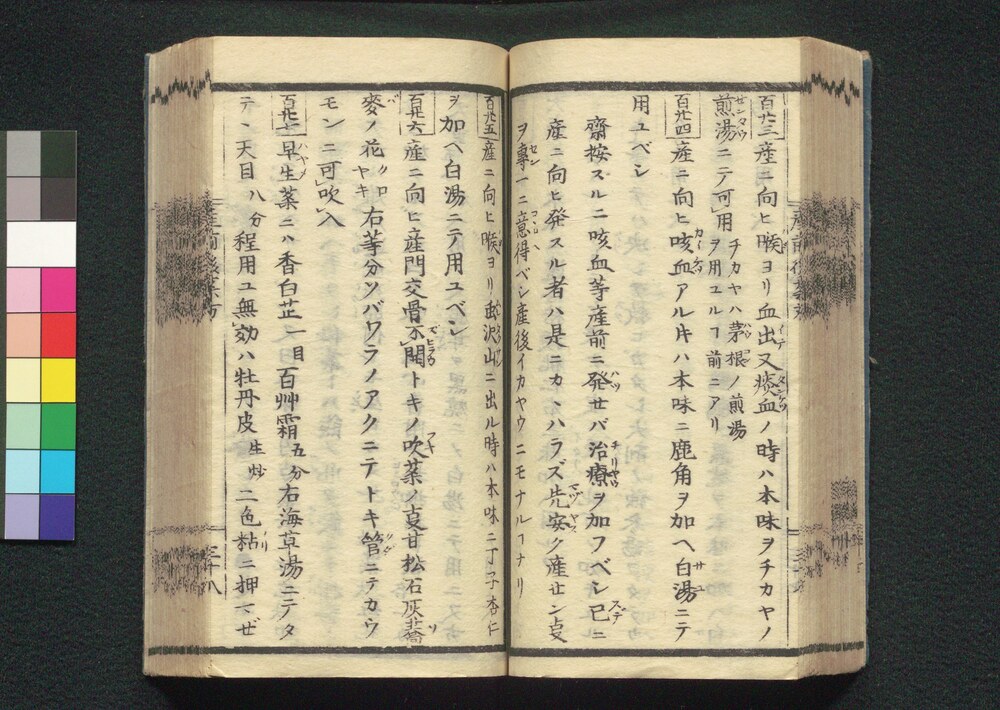 百廿三 産ニ向ヒ喉ヨリ血出又痰血ノ時ハ本味ヲチカヤノ
煎湯ニテ可用 チカヤハ茅根ノ煎湯ヲ用ユルヿ前ニアリ
百廿四 産ニ向ヒ咳血アル片ハ本味ニ鹿角ヲ加ヘ白湯ニテ
用ユベシ
齋按スルニ咳血等産前ニ発セバ治療ヲ加フベシ已ニ
産ニ向ヒ発スル者ハ是ニカヽハラズ先安ク産セン㕝
ヲ專一ニ意得ベシ産後イカヤウニモナルヿナリ
百廿五 産ニ向ヒ喉ヨリ 沢山ニ出ル時ハ本味ニ丁子杏仁
ヲ加ヘ白湯ニテ用ユベシ
百廿六 産ニ向ヒ産門交骨不開トキノ吹薬ノ㕝甘松石灰蕎
麥ノ花 クロヤキ 右等分ソバワラノアクニテトキ管ニテカウ
モンニ可吹入
百廿七 早生薬ニハ香白芷一目百艸霜五分右海草湯ニテタ
テヽ天目八分程用ユ無効ハ牡丹皮 生 炒 二色粘ニ押マゼ
産前後薬方